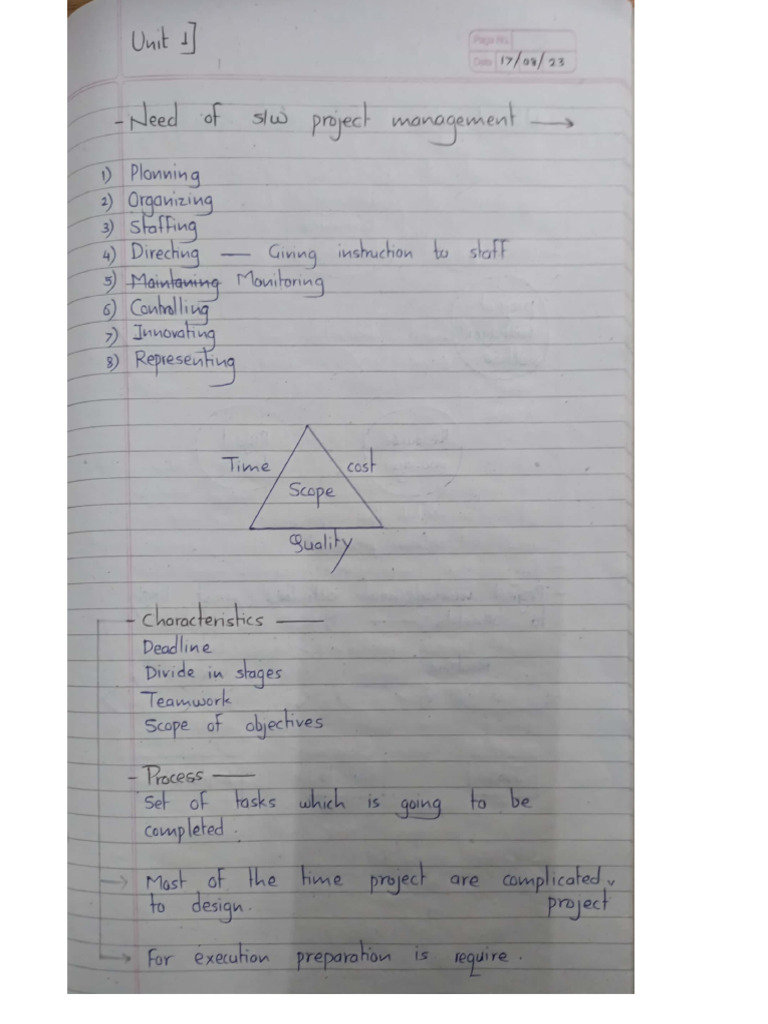 Unit 1]
Page No.
Date 17/08/23
- Need of s/w project management →
1) Planning
2) Organizing
3) Staffing
4) Directing — Giving instruction to staff
5) Maintaning Monitoring
6) Controlling
7) Innovating
8) Representing
Time cost
Scope
Quality
- Characteristics —
Deadline
Divide in stages
Teamwork
Scope of objectives
- Process —
Set of tasks which is going to be
completed.
→ Most of the time project are complicated
to design. project
→ For execution preparation is require.